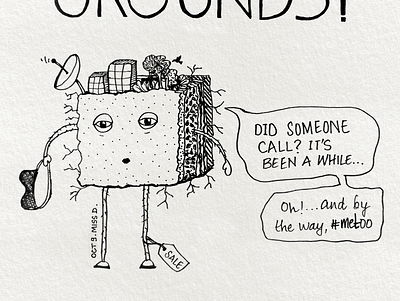 GROUNDS!
DID SOMEONE
CALL? IT'S
BEEN A WHILE...
Oh!...and by
the way, #metoo
OCT 9. MISS D.
SALE